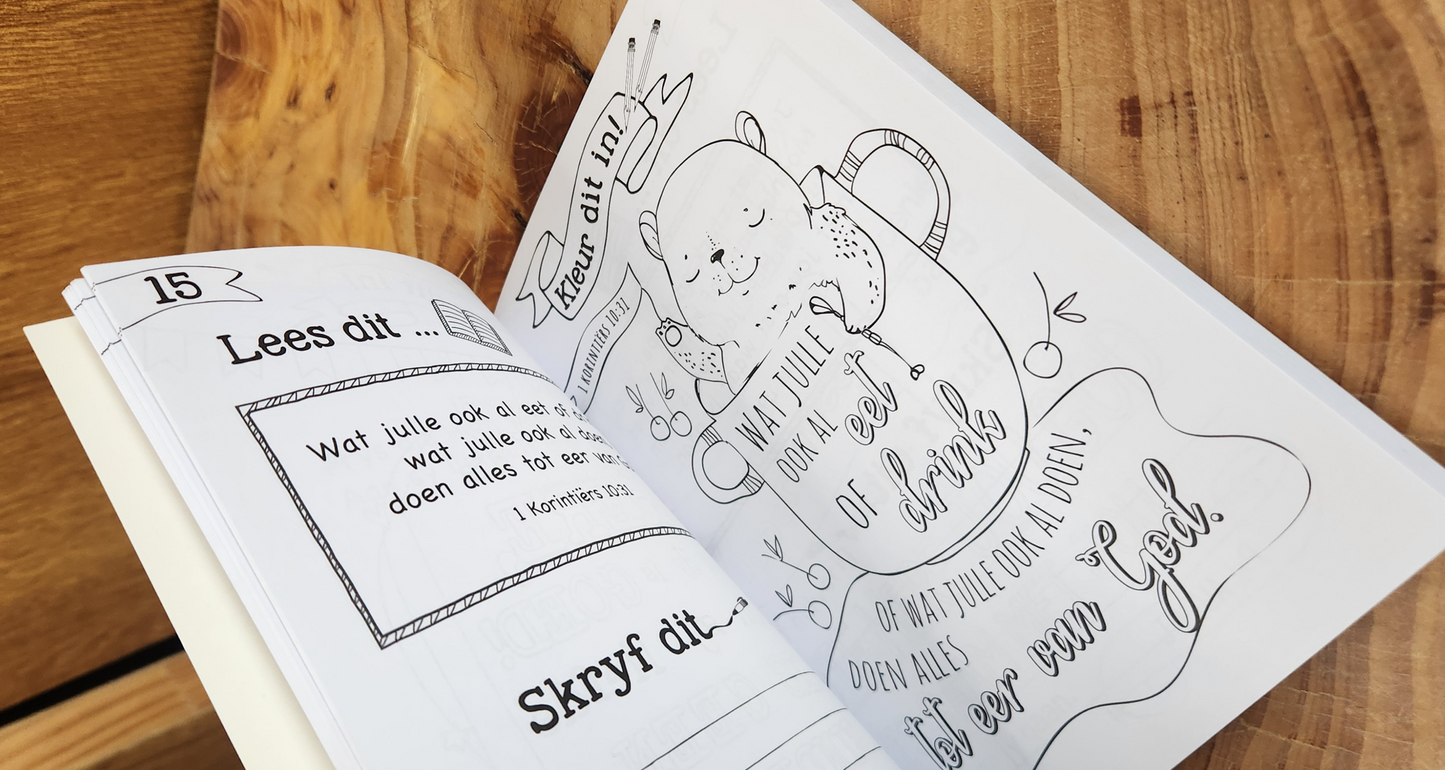 15
Lees dit ...
Wat julle ook al eet of
wat julle ook al doen
doen alles tot eer van
1 Korintiërs 10:31
Skryf dit
Kleur dit in!
1 KORINTIËRS 10:31
WAT JULLE
OOK AL eet
OF drink
OF WAT JULLE OOK AL DOEN,
DOEN ALLES
tot eer van God.